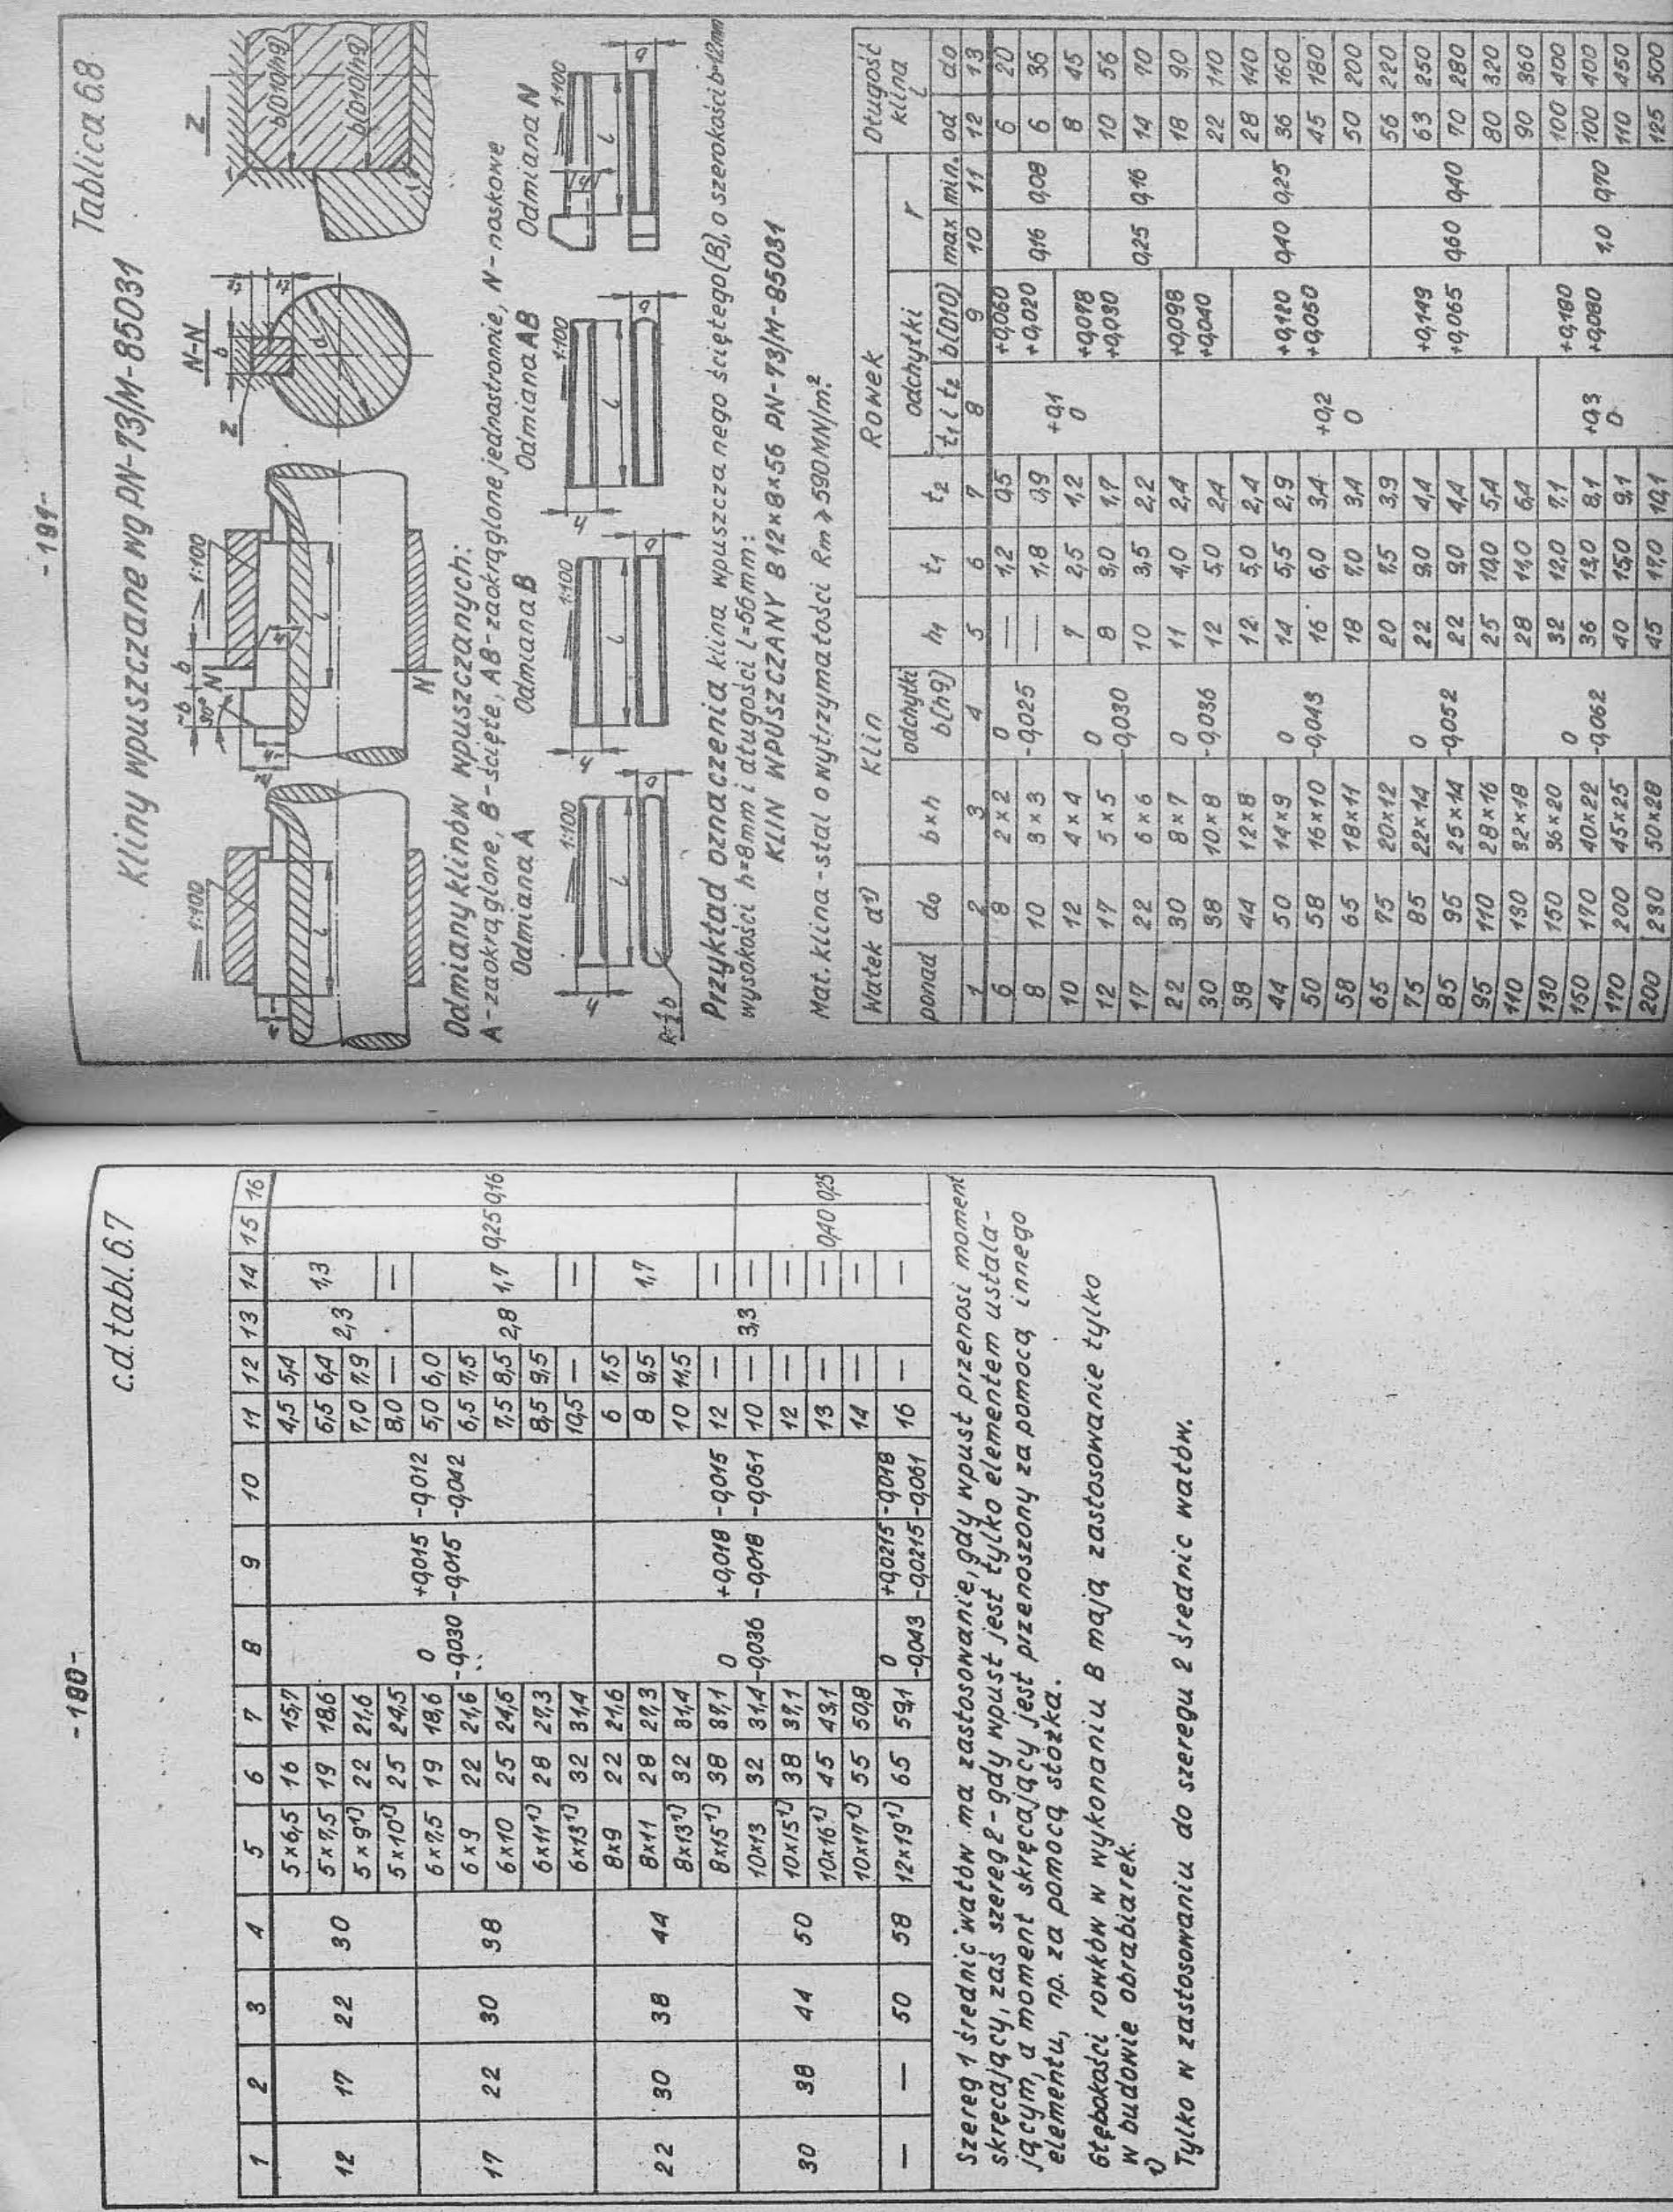 - 180 -
c.d. tabl. 6.7
1 2 3 4 5 6 7 8 9 10 11 12 13 14 15 16
12 17 22 30 5×6,5 16 15,7 0 -0,030 +0,015 -0,015 -0,012 -0,042 4,5 5,4 2,3 1,3 0,25 0,16
5×7,5 19 18,6 5,5 6,4
5×9¹⁾ 22 21,6 7,0 7,9
5×10¹⁾ 25 24,5 8,0 — —
17 22 30 38 6×7,5 19 18,6 5,0 6,0 2,8 1,7
6×9 22 21,6 6,5 7,5
6×10 25 24,5 7,5 8,5
6×11¹⁾ 28 27,3 8,5 9,5
6×13¹⁾ 32 31,4 10,5 — —
22 30 38 44 8×9 22 21,6 0 -0,036 +0,018 -0,018 -0,015 -0,051 6 7,5 3,3 1,7
8×11 28 27,3 8 9,5
8×13¹⁾ 32 31,4 10 11,5
8×15¹⁾ 38 37,1 12 — —
30 38 44 50 10×13 32 31,4 10 — — 0,40 0,25
10×15¹⁾ 38 37,1 12 — —
10×16¹⁾ 45 43,1 13 — —
10×17¹⁾ 55 50,8 14 — —
— — 50 58 12×19¹⁾ 65 59,1 0 -0,043 +0,0215 -0,0215 -0,018 -0,061 16 — —
Szereg 1 średnic wałów ma zastosowanie, gdy wpust przenosi moment
skręcający, zaś szereg 2 - gdy wpust jest tylko elementem ustala-
jącym, a moment skręcający jest przenoszony za pomocą innego
elementu, np. za pomocą stożka.
Głębokości rowków w wykonaniu B mają zastosowanie tylko
w budowie obrabiarek.
1)
Tylko w zastosowaniu do szeregu 2 średnic wałów.
- 181 -
Tablica 6.8
Kliny wpuszczane wg PN-73/M-85031
1:100
l
~b b
30°
N
1:100
l
N
N-N
b
Z
d
Z
b(D10/h9)
b(D10/h9)
Odmiany klinów wpuszczanych:
A - zaokrąglone, B - ścięte, AB - zaokrąglone jednostronnie, N - noskowe
Odmiana A Odmiana B Odmiana AB Odmiana N
1:100 1:100 1:100 1:100
h l b h l b h l b h l b
R=½b
Przykład oznaczenia klina wpuszczanego ściętego (B), o szerokości b=12mm
wysokości h=8mm i długości l=56mm:
KLIN WPUSZCZANY B 12×8×56 PN-73/M-85031
Mat. klina - stal o wytrzymałości Rm ≥ 590 MN/m².
Wałek d¹⁾ Klin Rowek Długość klina l
ponad do b×h odchyłki b(h9) h1 t1 t2 odchyłki t1 i t2 b(D10) r max min. od do
1 2 3 4 5 6 7 8 9 10 11 12 13
6 8 2×2 0 -0,025 — 1,2 0,5 +0,1 0 +0,060 +0,020 0,16 0,08 6 20
8 10 3×3 — 1,8 0,9 6 36
10 12 4×4 0 -0,030 7 2,5 1,2 +0,078 +0,030 8 45
12 17 5×5 8 3,0 1,7 0,25 0,16 10 56
17 22 6×6 10 3,5 2,2 14 70
22 30 8×7 0 -0,036 11 4,0 2,4 +0,2 0 +0,098 +0,040 18 90
30 38 10×8 12 5,0 2,4 0,40 0,25 22 110
38 44 12×8 0 -0,043 12 5,0 2,4 +0,120 +0,050 28 140
44 50 14×9 14 5,5 2,9 36 160
50 58 16×10 16 6,0 3,4 45 180
58 65 18×11 18 7,0 3,4 50 200
65 75 20×12 0 -0,052 20 7,5 3,9 +0,149 +0,065 0,60 0,40 56 220
75 85 22×14 22 9,0 4,4 63 250
85 95 25×14 22 9,0 4,4 70 280
95 110 28×16 25 10,0 5,4 80 320
110 130 32×18 0 -0,062 28 11,0 6,4 +0,180 +0,080 90 360
130 150 36×20 32 12,0 7,1 +0,3 0 1,0 0,70 100 400
150 170 40×22 36 13,0 8,1 100 400
170 200 45×25 40 15,0 9,1 110 450
200 230 50×28 45 17,0 10,1 125 500